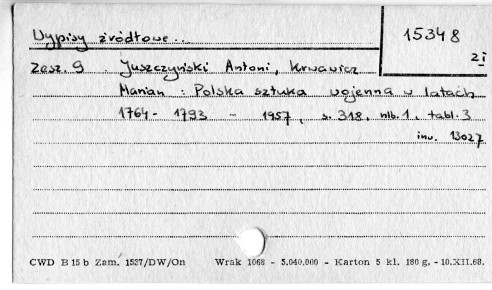 Wypisy źródłowe..
15348
zı
Zesz. 9. Juszczyński Antoni, Krwawicz
Marian : Polska sztuka wojenna w latach
1764 - 1793 - 1957, s. 318, nlb. 1, tabl. 3
inw. 13027
CWD B 15 b Zam. 1537/DW/On Wrak 1068 - 5.040.000 - Karton 5 kl. 180 g. - 10.XII.68.